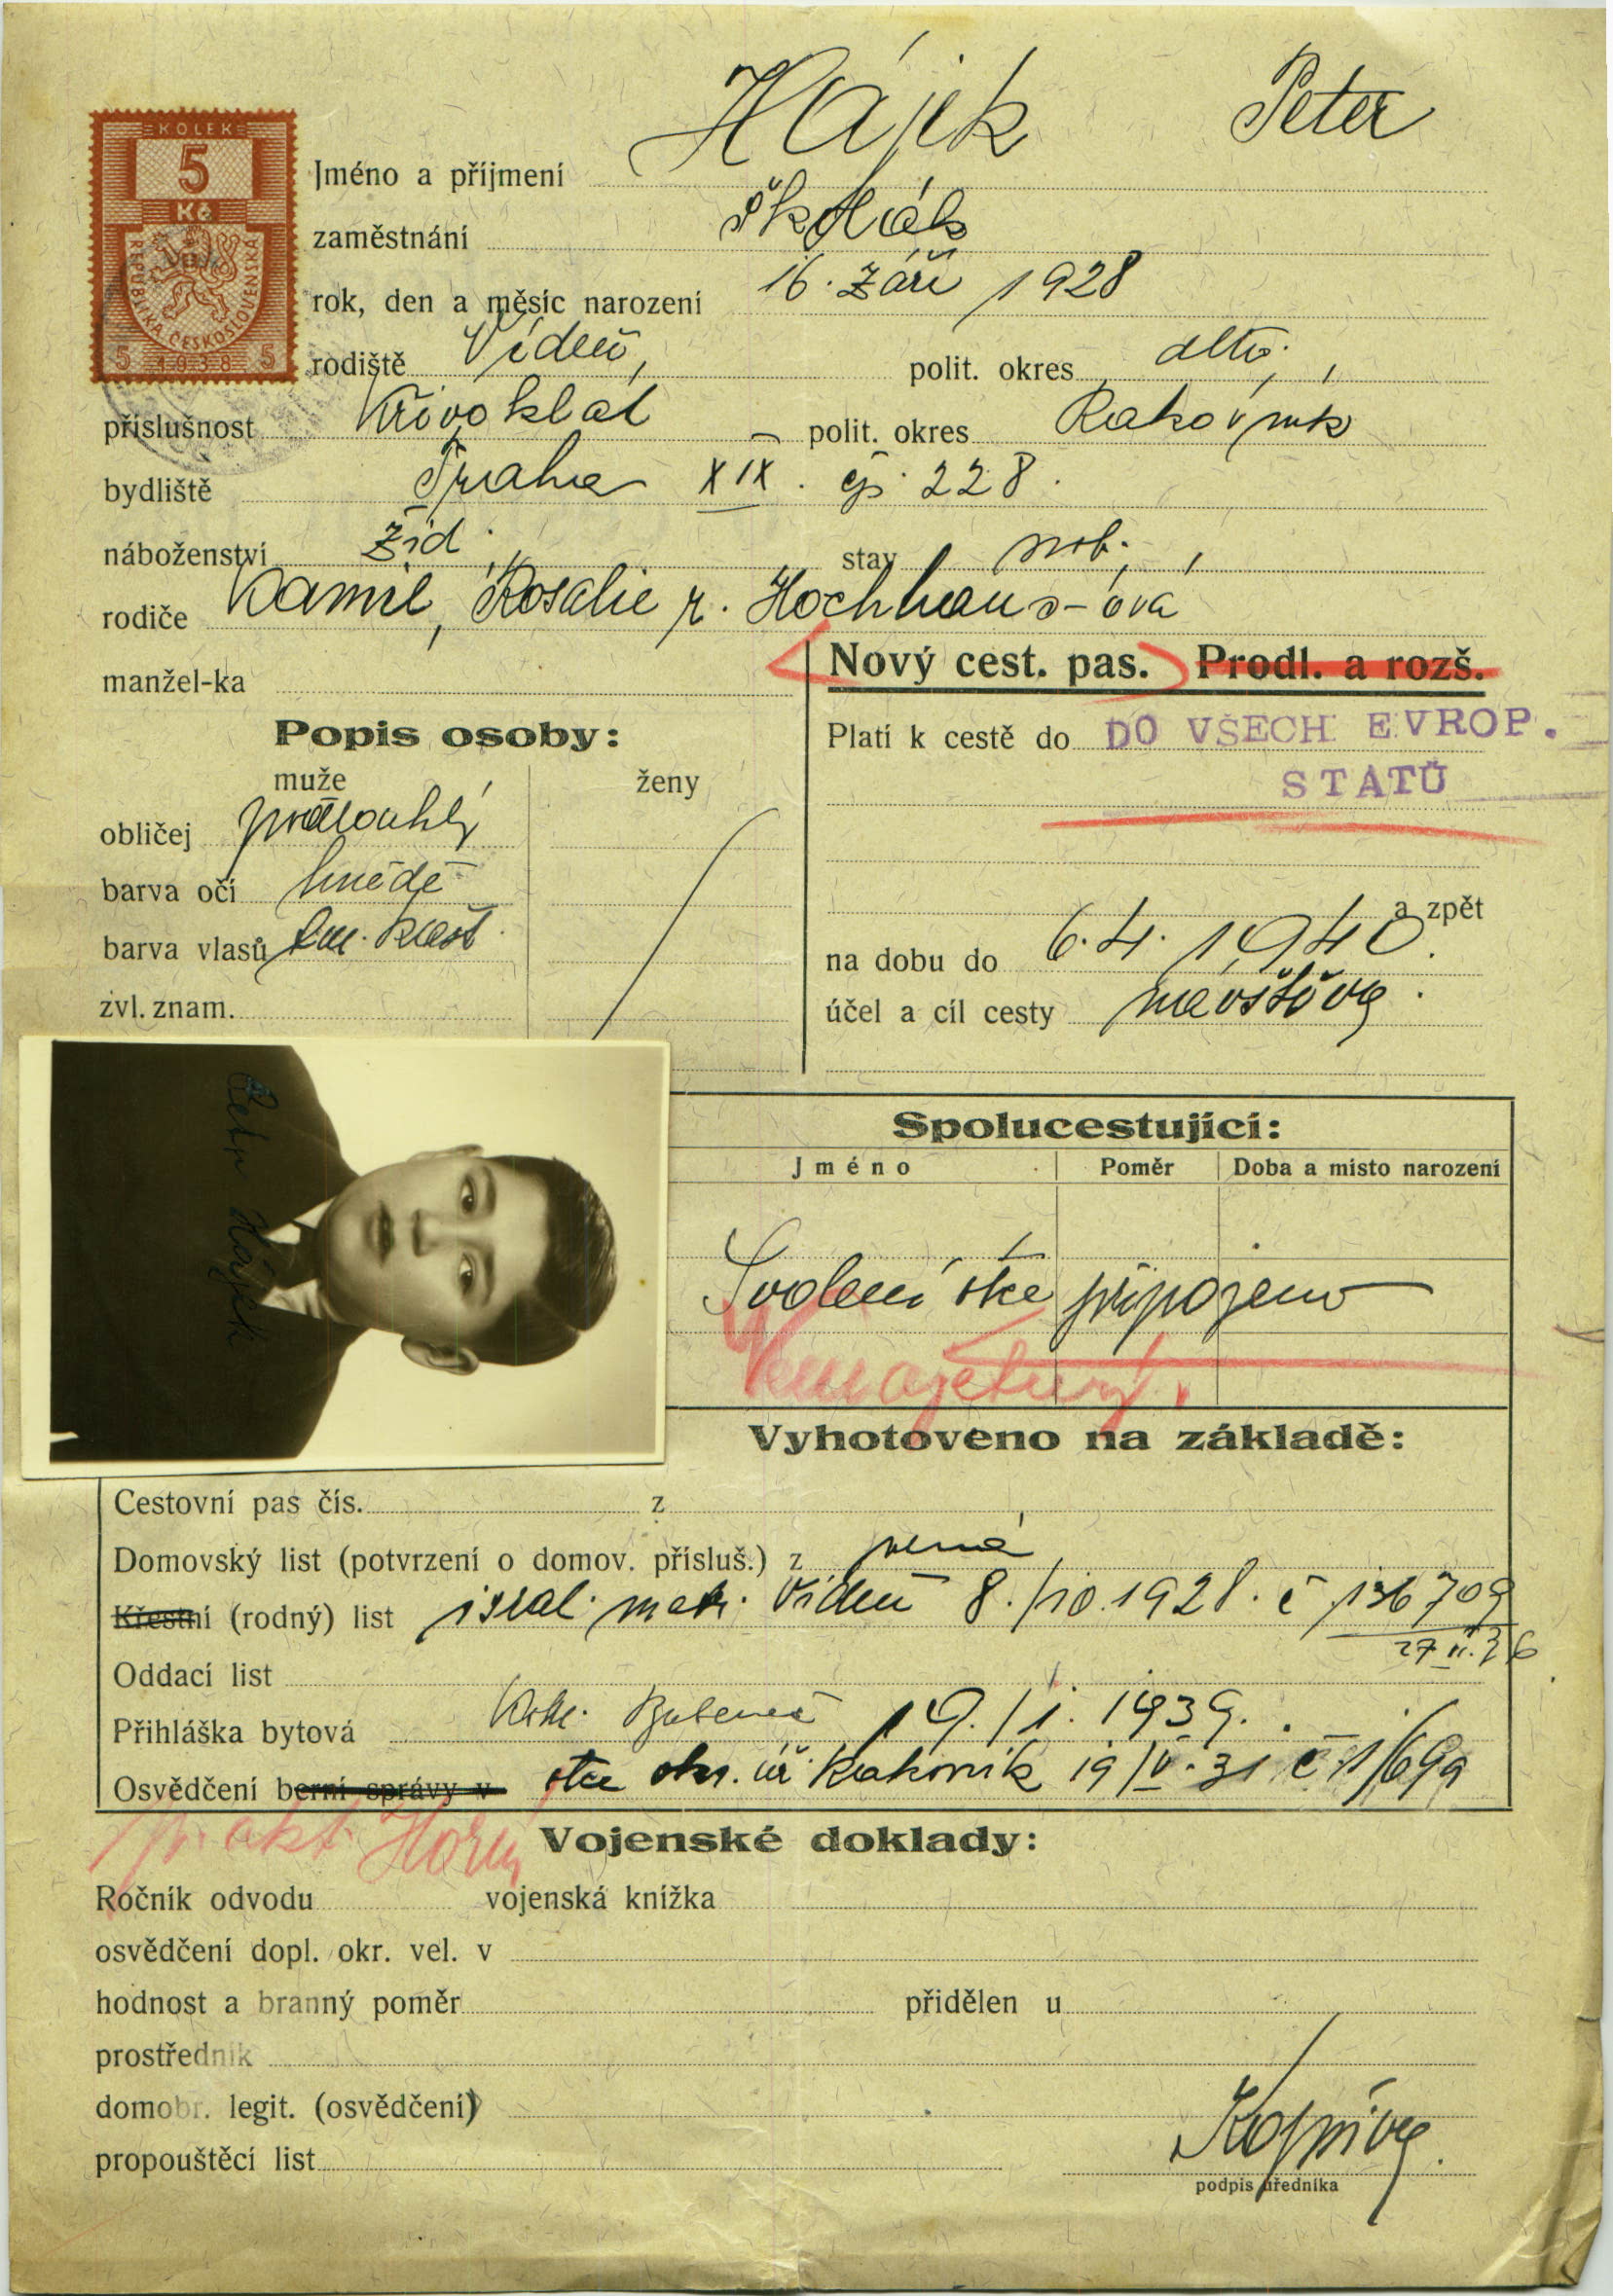 Hájek Peter
KOLEK
5
Kč
REPUBLIKA ČESKOSLOVENSKÁ
5 1938 5
Jméno a příjmení
zaměstnání školák
rok, den a měsíc narození 16. září 1928
rodiště Vídeň, polit. okres dtto,
příslušnost Křivoklát polit. okres Rakovník
bydliště Praha XIX. čp. 228.
náboženství žid. stav svob.,
rodiče Kamil, Rosalie r. Hochhaus-ová
manžel-ka
Nový cest. pas. Prodl. a rozš.
Popis osoby:
Platí k cestě do DO VŠECH EVROP.
STÁTŮ
muže ženy
obličej podlouhlý
barva očí hnědé
barva vlasů tm. kašt.
zvl. znam.
a zpět
na dobu do 6.4. 1940.
účel a cíl cesty návštěva.
Peter Hájek
Spolucestující:
Jméno Poměr Doba a místo narození
Svolení otce připojeno
Nemajetný.
Vyhotoveno na základě:
Cestovní pas čís. z
Domovský list (potvrzení o domov. přísluš.) z nemá
Křestní (rodný) list isral. matr. Vídeň 8./10.1928. č 136709
27 II. 36
Oddací list
Přihláška bytová Kom. Bubeneč 19./1. 1939.
Osvědčení berní správy v otce okr. úř. Rakovník 19/V. 31 č 1/699
Horký
Vojenské doklady:
Ročník odvodu vojenská knížka
osvědčení dopl. okr. vel. v
hodnost a branný poměr přidělen u
prostředník
domobr. legit. (osvědčení)
propouštěcí list
Kopřiva
podpis úředníka